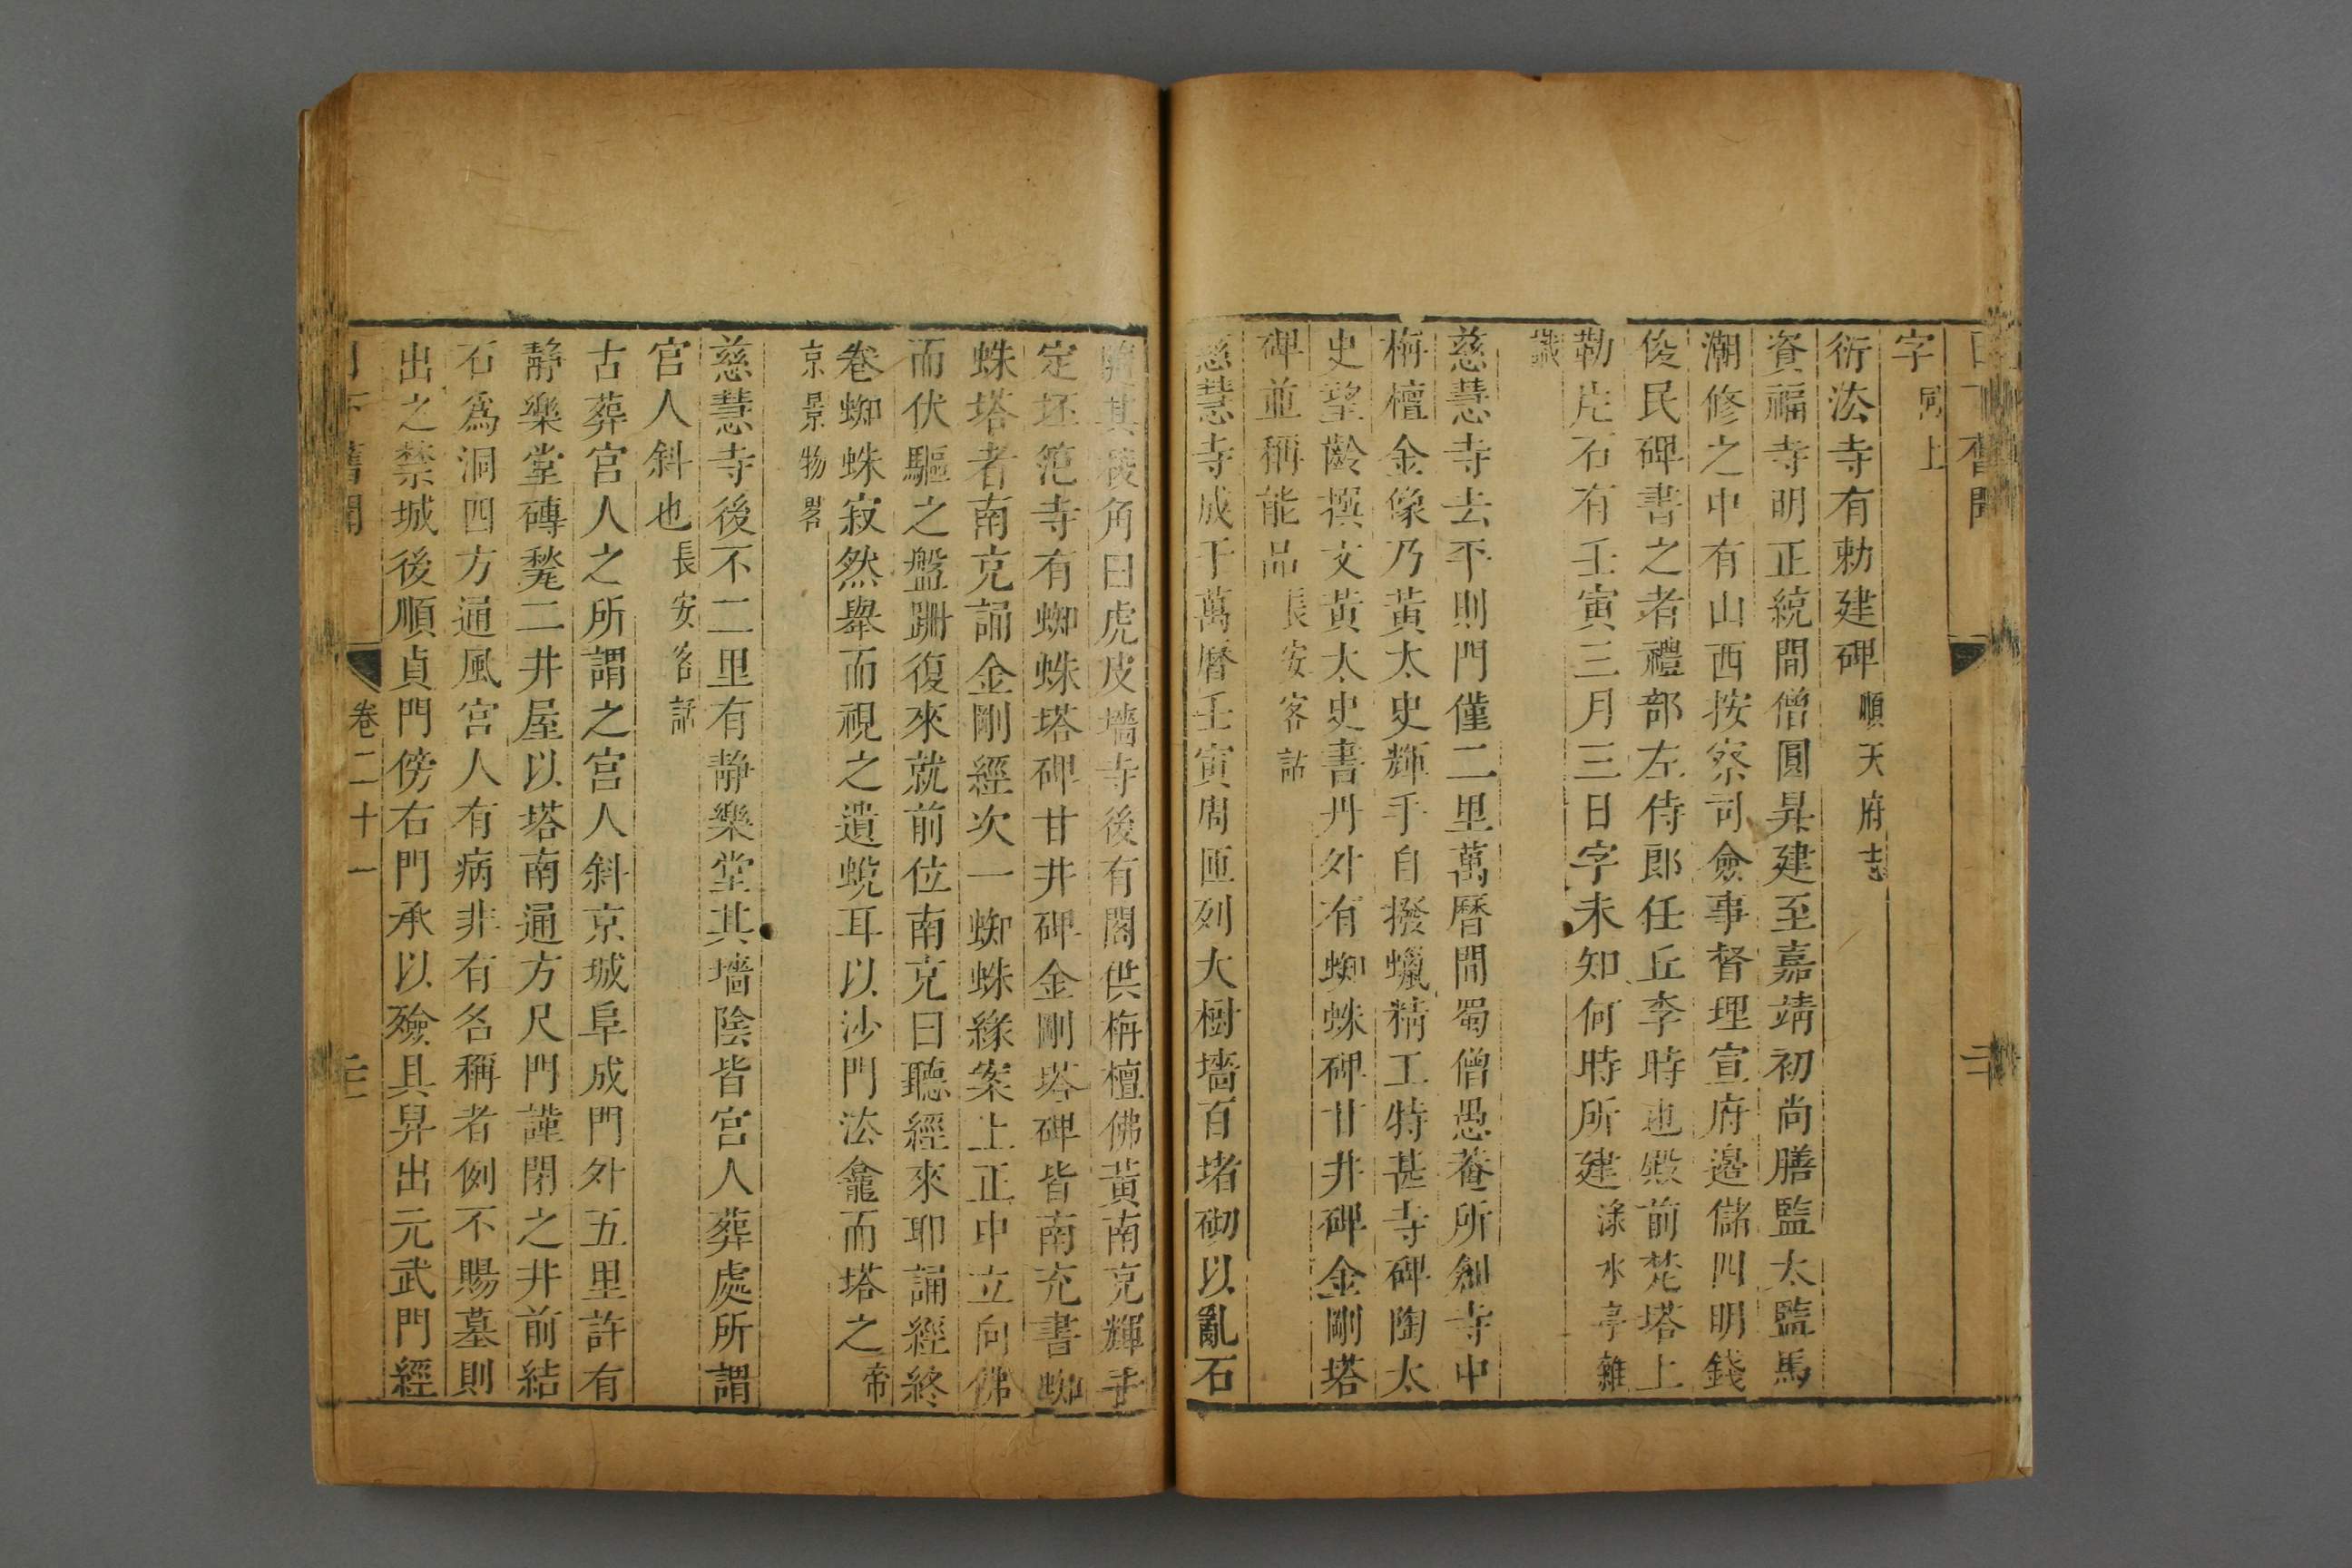 日下舊聞
字同上
衍法寺有勅建碑順天府志
資福寺明正統間僧圓昇建至嘉靖初尚膳監太監馬
潮修之中有山西按察司僉事督理宣府邊儲四明錢
俊民碑書之者禮部左侍郎任丘李時也殿前梵塔上
勒片石有壬寅三月三日字未知何時所建淥水亭雜
識
慈慧寺去平則門僅二里萬曆間蜀僧愚菴所創寺中
栴檀金像乃黃太史輝手自撥蠟精工特甚寺碑陶太
史望齡撰文黃太史書丹外有蜘蛛碑甘井碑金剛塔
碑並稱能品長安客話
慈慧寺成于萬曆壬寅周匝列大樹墻百堵砌以亂石
其稜角曰虎皮墻寺後有閣供栴檀佛黃南充輝手
定坯笵寺有蜘蛛塔碑甘井碑金剛塔碑皆南充書蜘
蛛塔者南充誦金剛經次一蜘蛛緣案上正中立向佛
而伏驅之盤跚復來就前位南充曰聽經來耶誦經終
卷蜘蛛寂然舉而視之遺蛻耳以沙門法龕而塔之帝
京景物畧
慈慧寺後不二里有靜樂堂其墻陰皆宮人葬處所謂
宮人斜也長安客話
古葬宮人之所謂之宮人斜京城阜成門外五里許有
靜樂堂磚甃二井屋以塔南通方尺門謹閉之井前結
石為洞四方通風宮人有病非有名稱者例不賜墓則
出之禁城後順貞門傍右門承以殮具舁出元武門經
日下舊聞
卷二十一